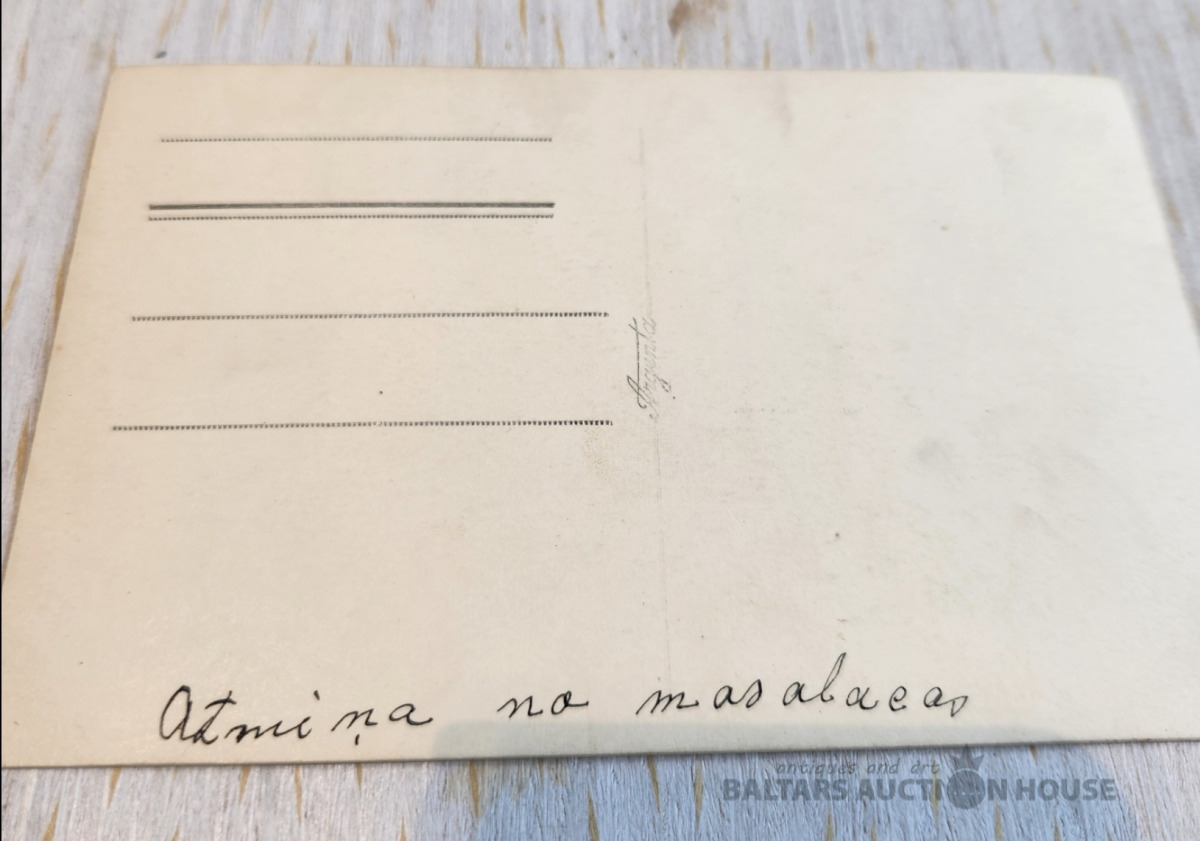 Argenta
Atmiņa no masalacas
antiques and art
BALTARS AUCTION HOUSE